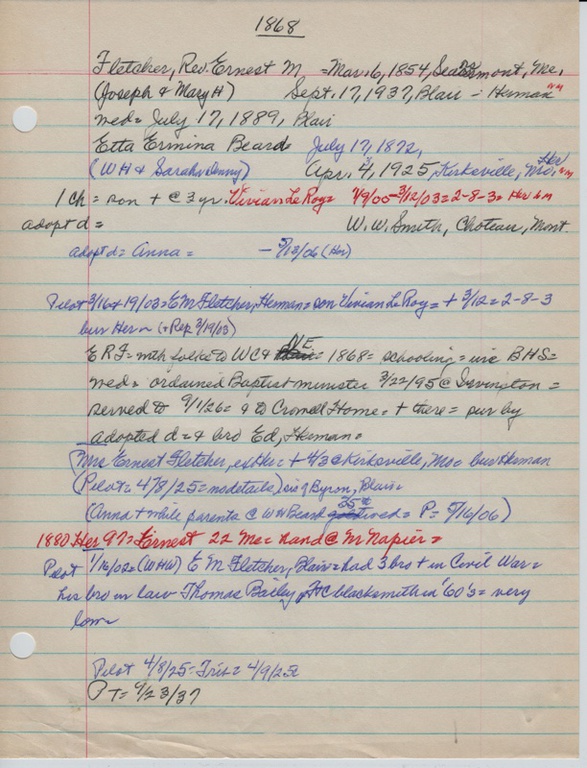 1868
Fletcher, Rev. Ernest M = Mar. 6, 1854, Searsmont, Me.
(Joseph & Mary H) Sept. 17, 1937, Blair - Herman
wed = July 17, 1889, Blair
Etta Ermina Beard July 17, 1872,
(WH & Sarah Denny) Apr. 4, 1925, Kirksville, Mo. Her
1 ch = son + @ 3 yr. Vivian LeRoy = 7/9/00 - 3/12/03 = 2-8-3 =
adopt d = W. W. Smith, Choteau, Mont.
adopt d = Anna = - 5/13/06 (Her)
Pilot 3/16 & 19/03 = E M Fletcher, Herman = son Vivian LeRoy = + 3/12 = 2-8-3
bur Her (+ Rep 3/19/03)
E R F = with folks to WC & NE = 1868 = schooling = BHS =
wed = ordained Baptist minister 3/22/95 @ Irvington =
served to 9/1/26 = to Crowell Home = + there = sur by
adopted d = & bro Ed, Herman =
(Mrs Ernest Fletcher, = + 4/3 @ Kirksville, Mo = bur Herman
(Pilot = 4/8/25 = no details) sis of Byron, Blair =
(Anna + while parents @ W H Beard = P = 5/16/06)
1880 Her 97 = Ernest 22 Me = hand @ M Napier =
Pilot 1/16/02 = (WHW) E M Fletcher, Blair = had 3 bro + in Civil War =
his bro in law Thomas Bailey, FtC blacksmith in '60's = very
low =
Pilot 4/8/25 - Trib = 4/9/25
P T = 9/23/37